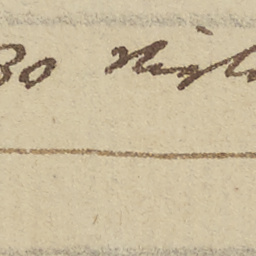 30 Nigh